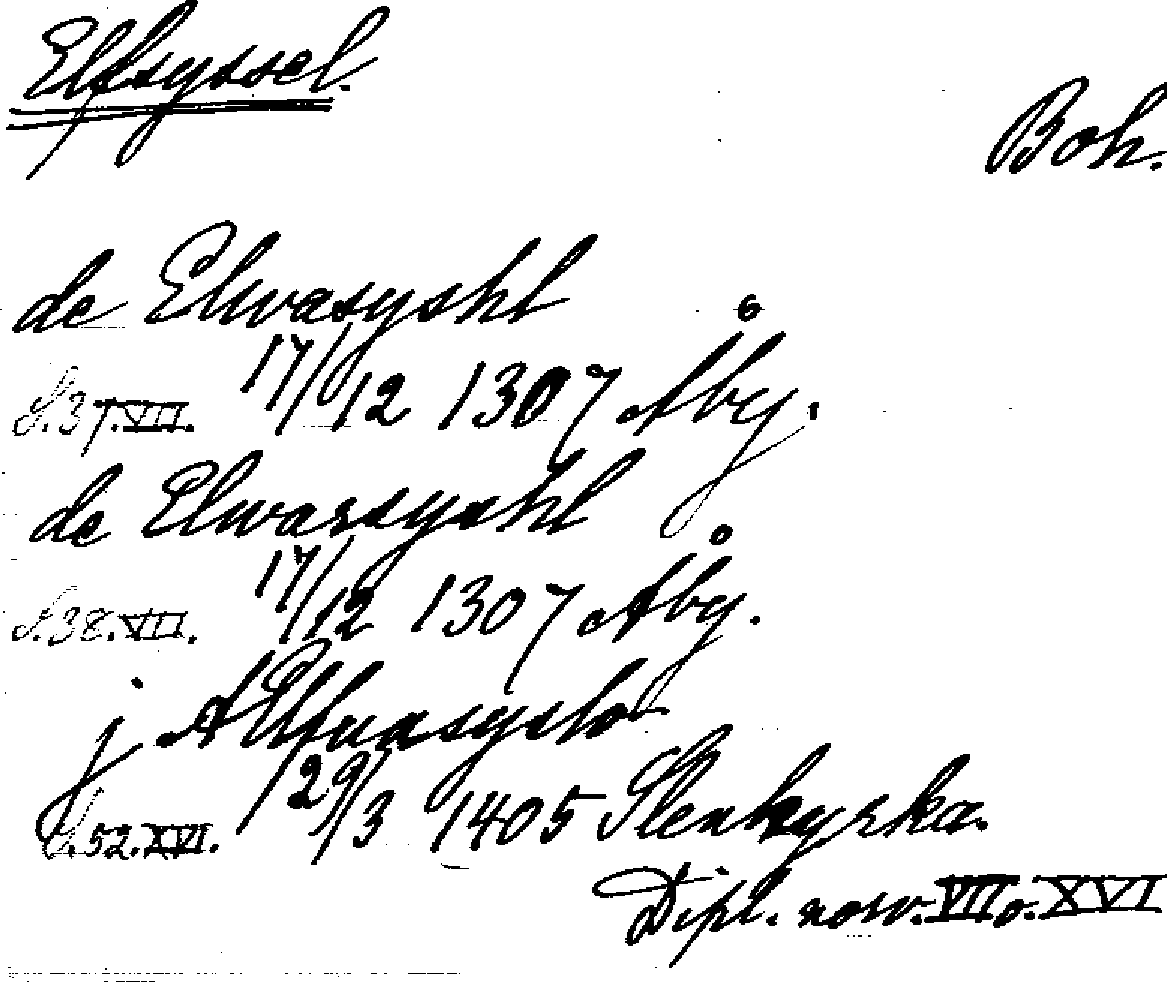 Elfsyssel.
Boh.
de Elwasyshl
S.37.VII. 17/12 1307 Åby.
de Elwarsyshl
S.38.VII. 17/12 1307 Åby.
j Ælfuasyslo
S.52.XVI. 29/3 1405 Stenkyrka.
Dipl. norv. VII o. XVI